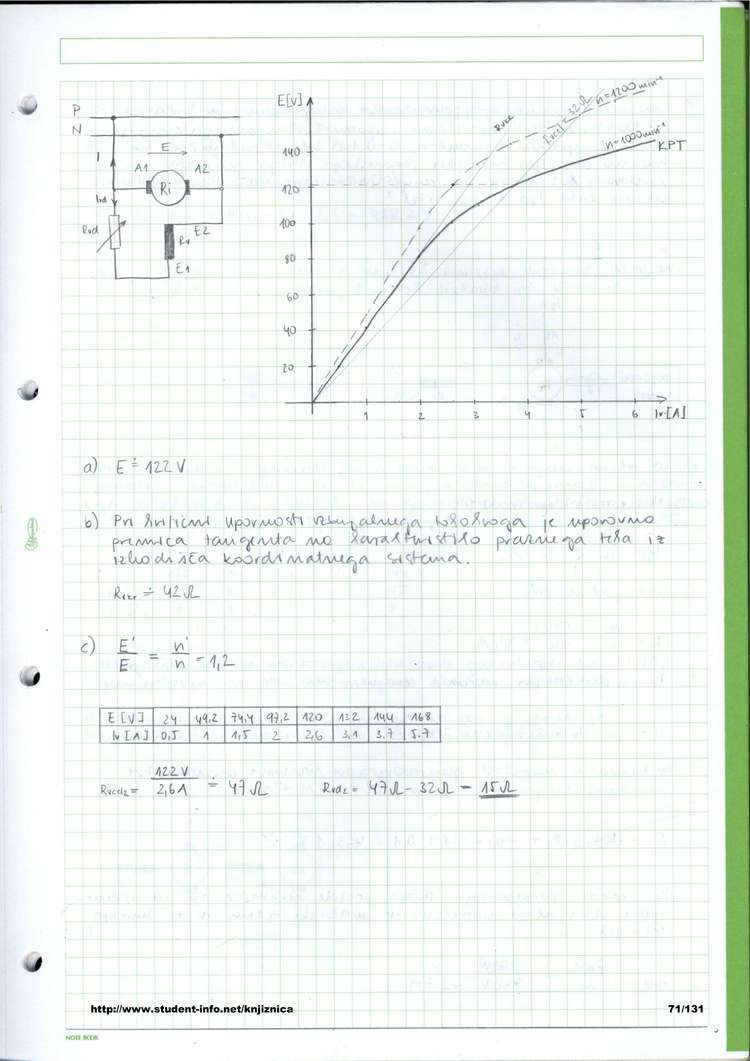 P
N
I
E
A1
A2
Ri
Ivd
Rvd
Rv
E2
E1
E[V]
140
120
100
80
60
40
20
1
2
3
4
5
6
Iv[A]
n=1200 min⁻¹
n=1000 min⁻¹
KPT
a) E ≐ 122 V
b) Pri kritični upornosti vzbujalnega tokokroga je uporovna
premica tangenta na karakteristiko praznega teka iz
izhodišča koordinatnega sistema.
Rvkr ≐ 42 Ω
c) E'/E = n'/n = 1,2
E [V] 24 49,2 74,4 97,2 120 132 144 168
Iv [A] 0,5 1 1,5 2 2,6 3,1 3.7 5.7
Rvcel2 = 122V/2,6A ≐ 47 Ω Rvd2 = 47Ω - 32Ω = 15Ω
http://www.student-info.net/knjiznica
71/131
NOTE BOOK